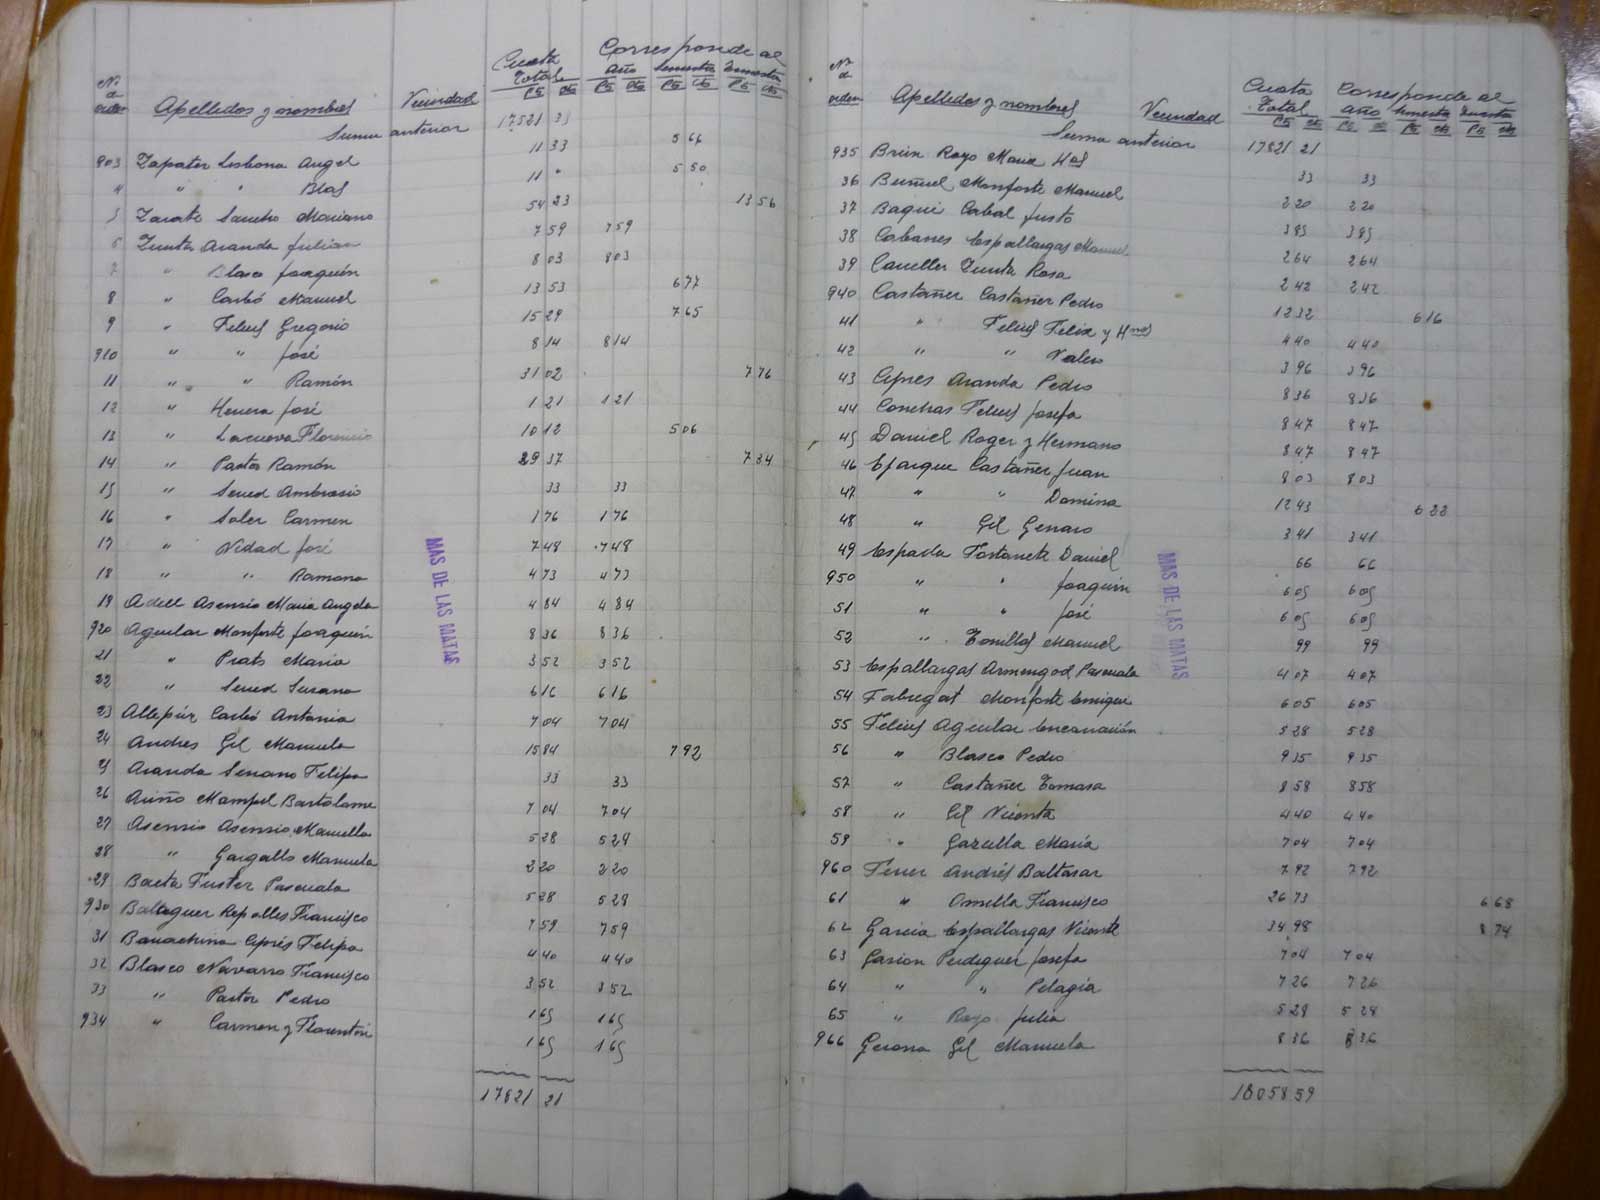 Nº d orden Apellidos y nombres Vecindad Cuota Total Pts Cts Corresponde al año Pts Cts Semestre Pts Cts Trimestre Pts Cts
Suma anterior 17521 33
903 Zapater Lisbona Angel 11 33 5 66
4 " " Blas 11 " 5 50
5 Zarate Sancho Mariano 54 23 13 56
6 Zurita Aranda Julian 7 59 7 59
7 " Blasco Joaquín 8 03 8 03
8 " Carbó Manuel 13 53 6 77
9 " Felius Gregorio 15 29 7 65
910 " " José 8 14 8 14
11 " " Ramón 31 02 7 76
12 " Herrera José 1 21 1 21
13 " Lacueva Florencio 10 12 5 06
14 " Pastor Ramón 29 37 7 34
15 " Sered Ambrosio 33 33
16 " Soler Carmen 1 76 1 76
17 " Vidal José 7 48 7 48
18 " " Ramona 4 73 4 73
19 Adell Asensio Maria Angela 4 84 4 84
920 Aguilar Monforte Joaquín 8 36 8 36
21 " Prats Maria 3 52 3 52
22 " Sered Susana 6 16 6 16
23 Allepúz Carbó Antonia 7 04 7 04
24 Andres Gil Manuela 15 84 7 92
25 Aranda Serrano Felipa 33 33
26 Ariño Mampel Bartolome 7 04 7 04
27 Asensio Asensio Manuella 5 28 5 28
28 " Gargallo Manuela 2 20 2 20
29 Baeta Fuster Pascuala 5 28 5 28
930 Balaguer Repolles Francisco 7 59 7 59
31 Barrachina Ciprés Felipa 4 40 4 40
32 Blasco Navarro Francisco 3 52 3 52
33 " Pastor Pedro 1 65 1 65
934 " Carmen y Florentin 1 65 1 65
17821 21
MAS DE LAS MATAS
Nº d orden Apellidos y nombres Vecindad Cuota Total Pts Cts Corresponde al año Pts Cts Semestre Pts Cts Trimestre Pts Cts
Suma anterior 17821 21
935 Brun Royo Maria Hos 33 33
36 Buñuel Monforte Manuel 2 20 2 20
37 Baqui Cabal Justo 3 85 3 85
38 Cabanes Espallargas Manuel 2 64 2 64
39 Caneller Zurita Rosa 2 42 2 42
940 Castañer Castañer Pedro 12 32 6 16
41 " Felius Felix y Hnos 4 40 4 40
42 " " Valero 3 96 3 96
43 Cipres Aranda Pedro 8 36 8 36
44 Conchas Felius Josefa 8 47 8 47
45 Daniel Roger y Hermano 8 47 8 47
46 Ejarque Castañer Juan 8 03 8 03
47 " " Domina 12 43 6 22
48 " Gil Genaro 3 41 3 41
49 Espada Fortanete Daniel 66 66
950 " " Joaquín 6 05 6 05
51 " " José 6 05 6 05
52 " Tomillos Manuel 99 99
53 Espallargas Armengod Pascuala 4 07 4 07
54 Fabregat Monforte Enrique 6 05 6 05
55 Felius Aguilar Encarnación 5 28 5 28
56 " Blasco Pedro 9 35 9 35
57 " Castañer Tomasa 8 58 8 58
58 " Gil Vicenta 4 40 4 40
59 " Garcella María 7 04 7 04
960 Ferrer Andrés Baltasar 7 92 7 92
61 " Omella Francisco 26 73 6 68
62 Garcia Espallargas Vicente 34 98 8 74
63 Garion Perdiguer Josefa 7 04 7 04
64 " " Pelagia 7 26 7 26
65 " Royo Julia 5 28 5 28
966 Gerona Gil Manuela 8 36 8 36
18058 59
MAS DE LAS MATAS